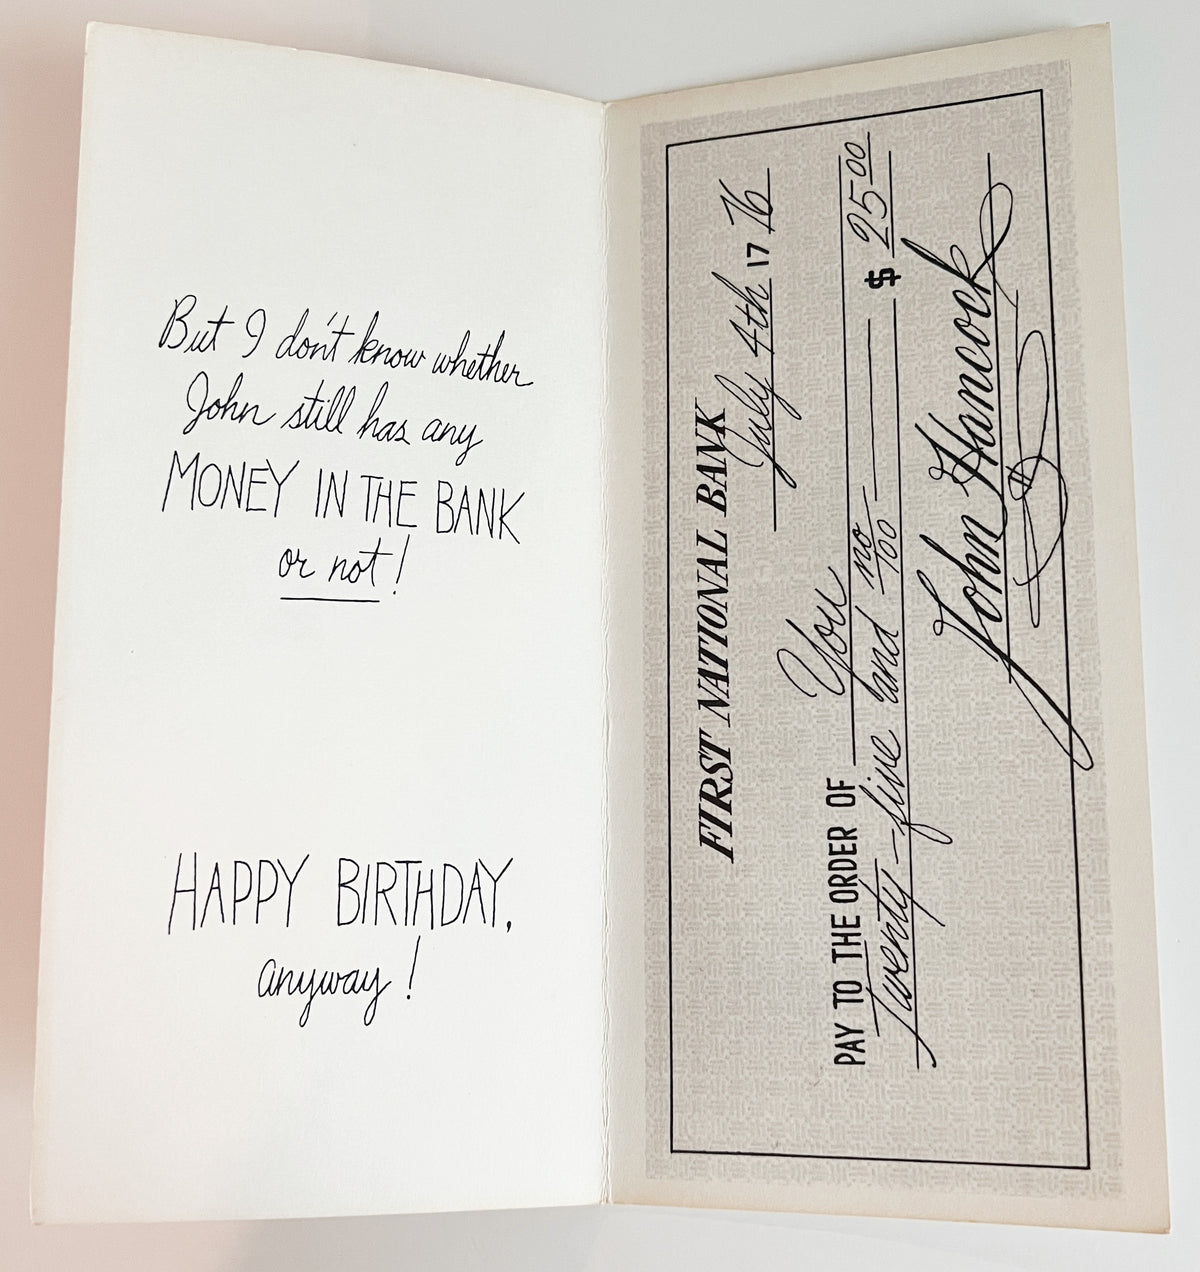 But I don't know whether
John still has any
MONEY IN THE BANK
or not!
HAPPY BIRTHDAY,
anyway!
FIRST NATIONAL BANK
July 4th 17 76
PAY TO THE ORDER OF You $ 25 00
Twenty-five and no/100
John Hancock